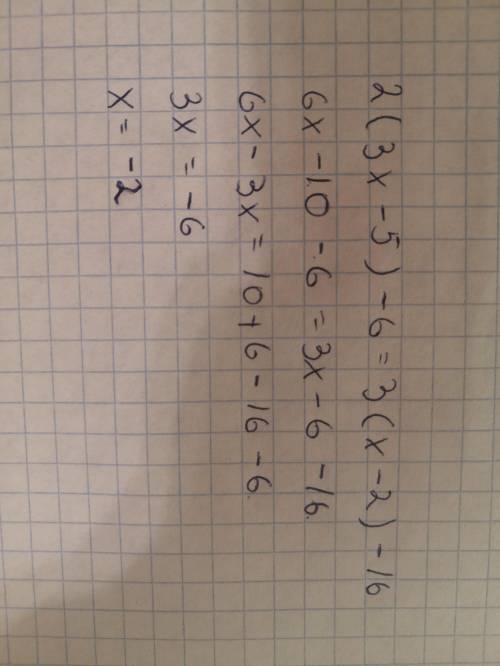 2(3x-5)-6=3(x-2)-16
6x-10-6=3x-6-16.
6x-3x=10+6-16-6.
3x=-6
x=-2